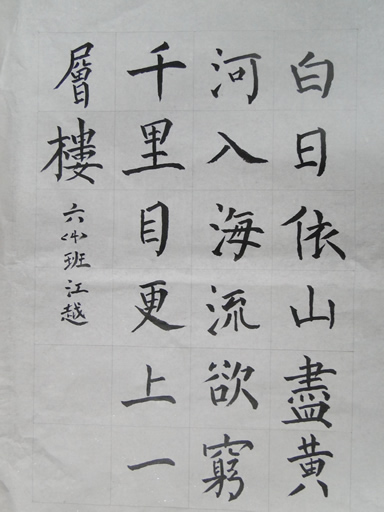 白日依山盡黄
河入海流欲窮
千里目更上一
層樓 六〈4〉班江越